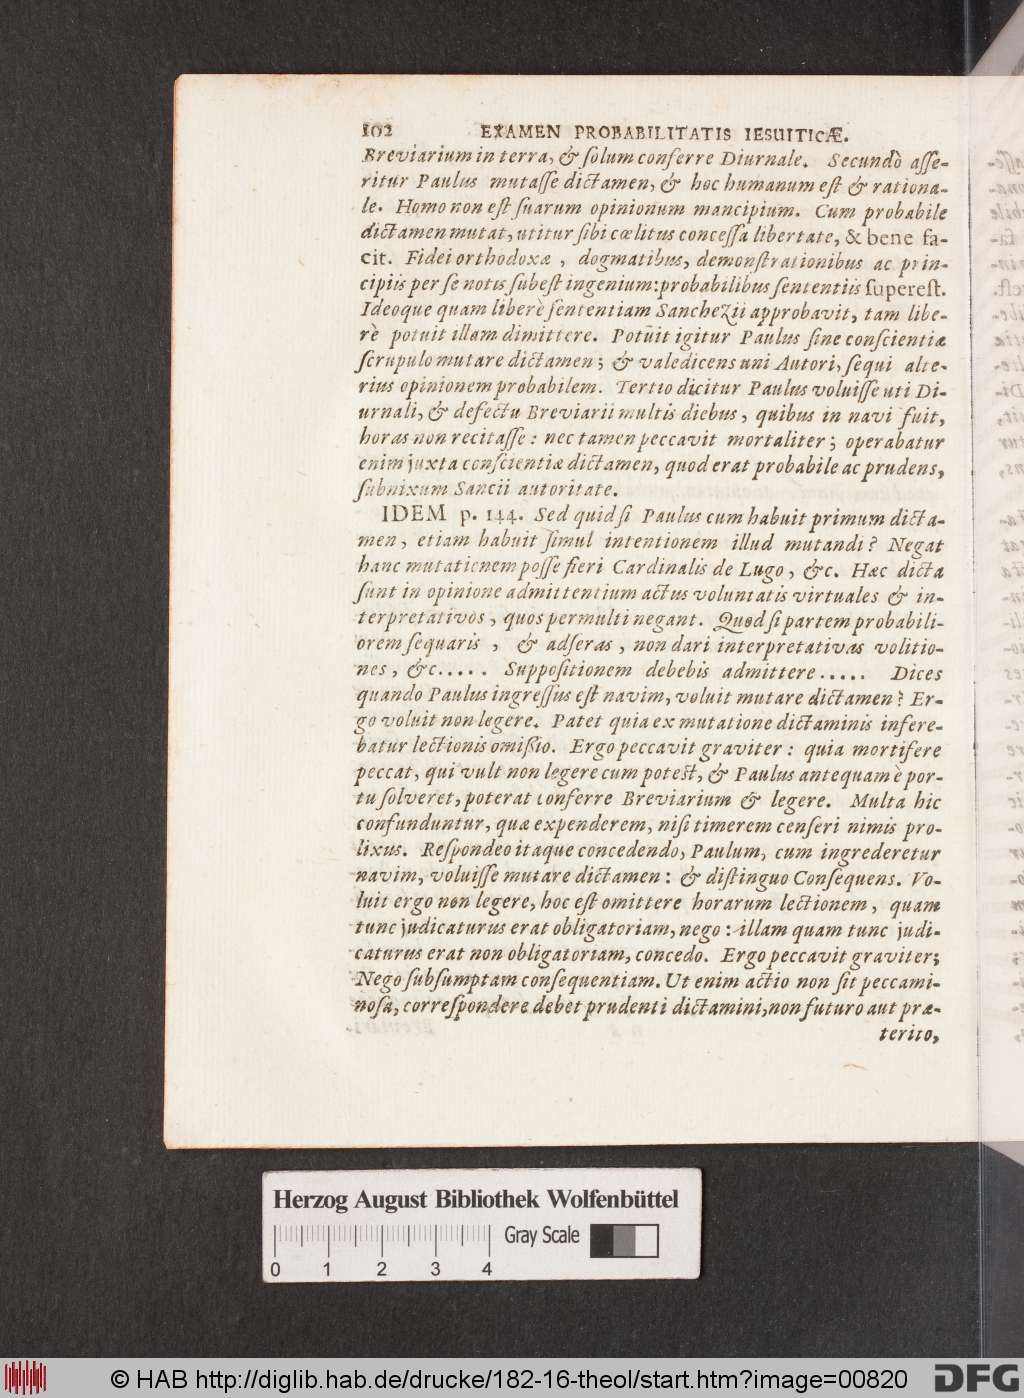 102 EXAMEN PROBABILITATIS IESUITICÆ.
Breviarium in terra, & ſolum conferre Diurnale. Secundò aſſe-
ritur Paulus mutaſſe dictamen, & hoc humanum eſt & rationa-
le. Homo non eſt ſuarum opinionum mancipium. Cum probabile
dictamen mutat, utitur ſibi cœlitus conceſſa libertate, & bene fa-
cit. Fidei orthodoxæ, dogmatibus, demonſtrationibus ac prin-
cipiis per ſe notis ſubeſt ingenium: probabilibus ſententiis ſupereſt.
Ideoque quam liberè ſententiam Sanchezii approbavit, tam libe-
rè potuit illam dimittere. Potuit igitur Paulus ſine conſcientiæ
ſcrupulo mutare dictamen; & valedicens uni Autori, ſequi alte-
rius opinionem probabilem. Tertio dicitur Paulus voluiſſe uti Di-
urnali, & defectu Breviarii multis diebus, quibus in navi fuit,
horas non recitaſſe: nec tamen peccavit mortaliter; operabatur
enim juxta conſcientiæ dictamen, quod erat probabile ac prudens,
ſubnixum Sancii autoritate.
IDEM p. 144. Sed quid ſi Paulus cum habuit primum dicta-
men, etiam habuit ſimul intentionem illud mutandi? Negat
hanc mutationem poſſe fieri Cardinalis de Lugo, &c. Hæc dicta
ſunt in opinione admittentium actus voluntatis virtuales & in-
terpretativos, quos permulti negant. Quod ſi partem probabili-
orem ſequaris, & adſeras, non dari interpretativas volitio-
nes, &c..... Suppoſitionem debebis admittere..... Dices
quando Paulus ingreſſus eſt navim, voluit mutare dictamen? Er-
go voluit non legere. Patet quia ex mutatione dictaminis infere-
batur lectionis omißio. Ergo peccavit graviter: quia mortifere
peccat, qui vult non legere cum potest, & Paulus antequam è por-
tu ſolveret, poterat conferre Breviarium & legere. Multa hic
confunduntur, quæ expenderem, niſi timerem cenſeri nimis pro-
lixus. Reſpondeo itaque concedendo, Paulum, cum ingrederetur
navim, voluiſſe mutare dictamen: & diſtinguo Conſequens. Vo-
luit ergo non legere, hoc eſt omittere horarum lectionem, quam
tunc judicaturus erat obligatoriam, nego: illam quam tunc judi-
caturus erat non obligatoriam, concedo. Ergo peccavit graviter;
Nego ſubſumptam conſequentiam. Ut enim actio non ſit peccami-
noſa, correſpondere debet prudenti dictamini, non futuro aut præ-
terito,
Herzog August Bibliothek Wolfenbüttel
Gray Scale
0 1 2 3 4
© HAB http://diglib.hab.de/drucke/182-16-theol/start.htm?image=00820
DFG